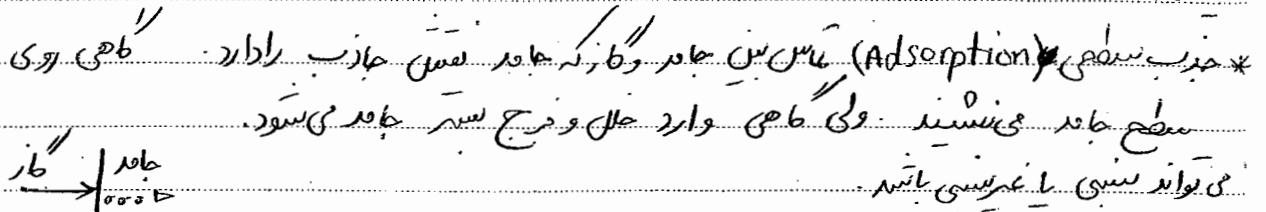 * جذب سطحی (Adsorption) تماس بین جامد و گاز که جامد نقش جاذب را دارد. گاهی روی
سطح جامد می‌نشیند. ولی گاهی وارد خلل و فرج بستر جامد می‌شود.
می‌تواند شیمیایی یا غیرشیمیایی باشد.
گاز جامد